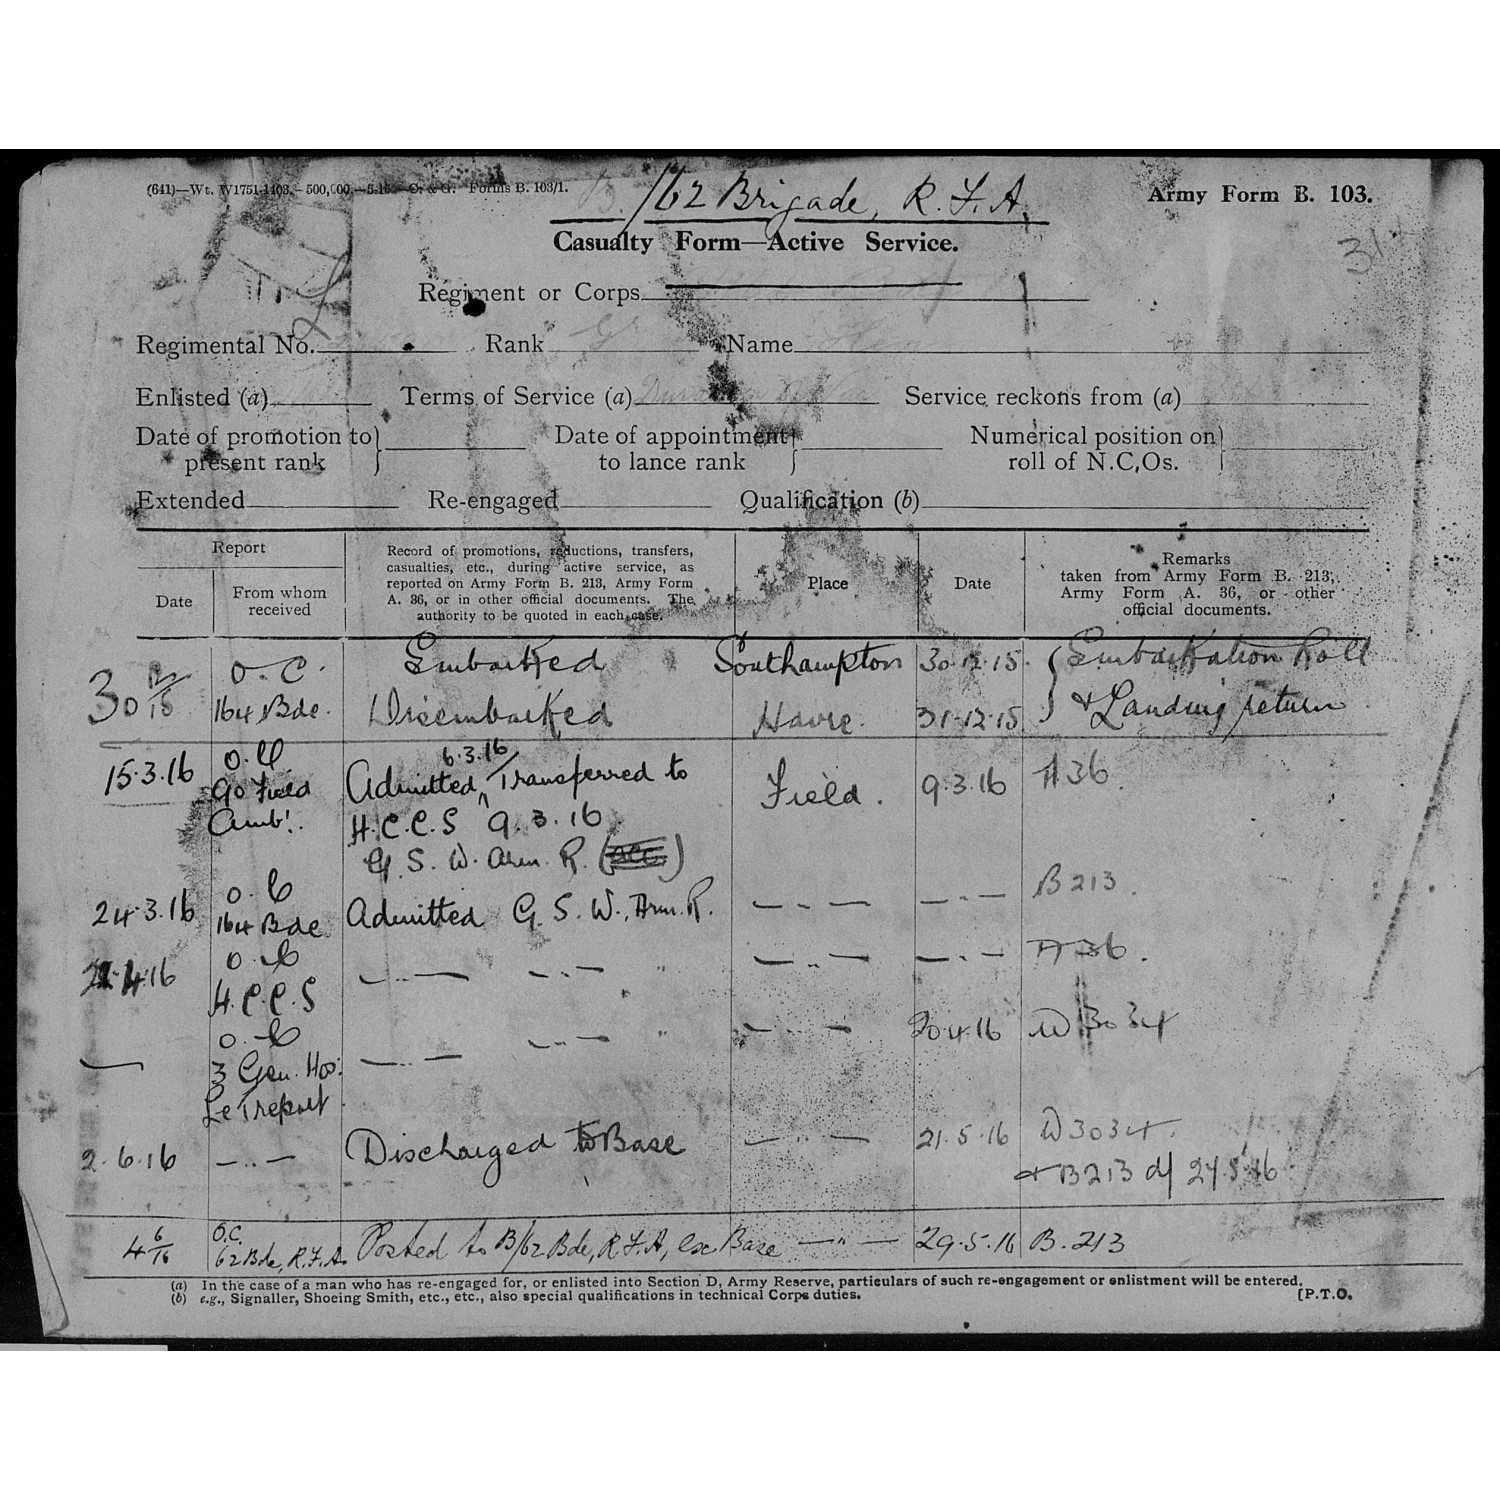 (641)—Wt. W1751-1103.—500,000.—5.15—C. & G. Forms B. 103/1.
B./62 Brigade, R.F.A.
Army Form B. 103.
31
Casualty Form—Active Service.
Regiment or Corps
Regimental No. Rank Gr Name
Enlisted (a) Terms of Service (a) Duration of War Service reckons from (a)
Date of promotion to present rank } Date of appointment to lance rank } Numerical position on roll of N.C.Os. }
Extended Re-engaged Qualification (b)
Report
Date
From whom received
Record of promotions, reductions, transfers,
casualties, etc., during active service, as
reported on Army Form B. 213, Army Form
A. 36, or in other official documents. The
authority to be quoted in each case.
Place
Date
Remarks
taken from Army Form B. 213,
Army Form A. 36, or other
official documents.
30 12/15 O.C. Embarked Southampton 30.12.15 } Embarkation Roll
164 Bde. Disembarked Havre. 31.12.15 & Landing return
15.3.16 O.C. 90 Field Amb. Admitted 6.3.16 Transferred to Field. 9.3.16 A36
H.C.C.S 9.3.16
G.S.W. Arm. R.
24.3.16 O.C 164 Bde Admitted G.S.W., Arm. R. — " — — " — B213.
4.16 O.C 4.C.C.S — " — — " — " — " — — " — A36.
— O.C 3 Gen. Hos. Le Treport — " — — " — " — " — 20.4.16 W3034
2.6.16 — " — Discharged to Base — " — 21.5.16 W3034.
+ B213 d/ 27.5.16
4 6/16 O.C. 62 Bde, R.F.A. Posted to B/62 Bde, R.F.A, ex Base — " — 29.5.16 B.213
(a) In the case of a man who has re-engaged for, or enlisted into Section D, Army Reserve, particulars of such re-engagement or enlistment will be entered.
(b) e.g., Signaller, Shoeing Smith, etc., etc., also special qualifications in technical Corps duties. [P.T.O.